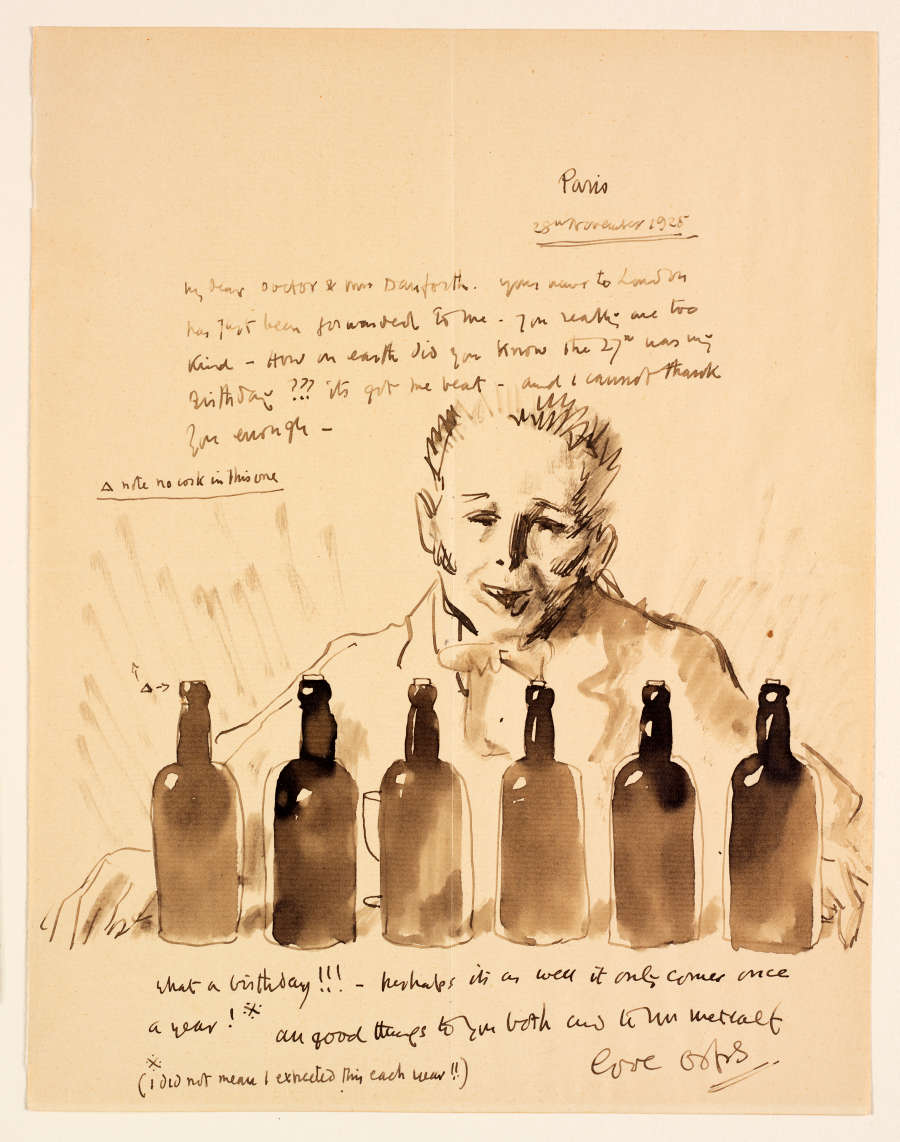 Paris
28th November 1925
My dear Doctor & Mrs Danforth. your news to London
has just been forwarded to me - you really are too
kind - How on earth did you know the 27th was my
Birthday ??? its got me beat - and I cannot thank
you enough -
△ note no cork in this one
△ →
what a birthday!!! - perhaps its as well it only comes once
a year! ※ all good things to you both and to Mr Metcalf
love Orps
※
(I did not mean I expected this each year!!)